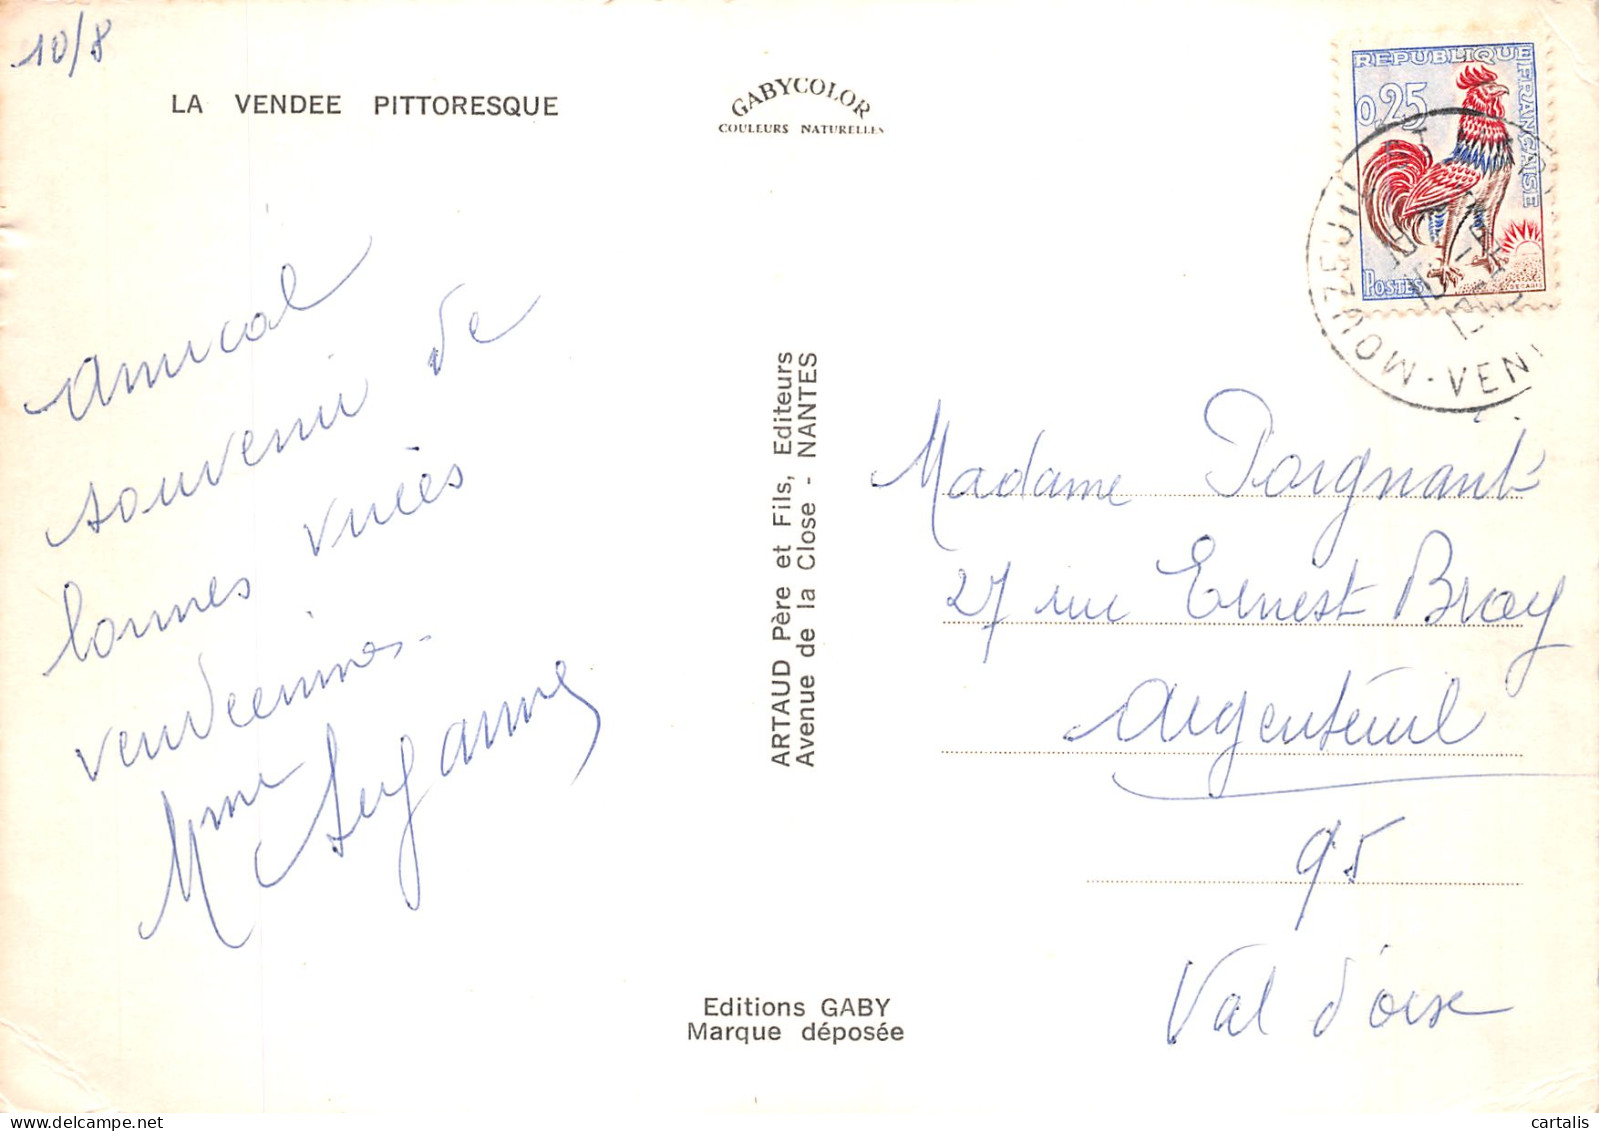 10/8
LA VENDEE PITTORESQUE
GABYCOLOR
COULEURS NATURELLES
REPUBLIQUE FRANÇAISE
0,25
POSTES
DECARIS
MOUZEUIL
VEN
Amical
souvenir de
bonnes vuiès
vendéennes.
Mme Suzanne
ARTAUD Père et Fils, Editeurs
Avenue de la Close - NANTES
Madame Poignant
27 rue Ernest Bray
Argenteuil
95
Val d'oise
Editions GABY
Marque déposée
cartalis